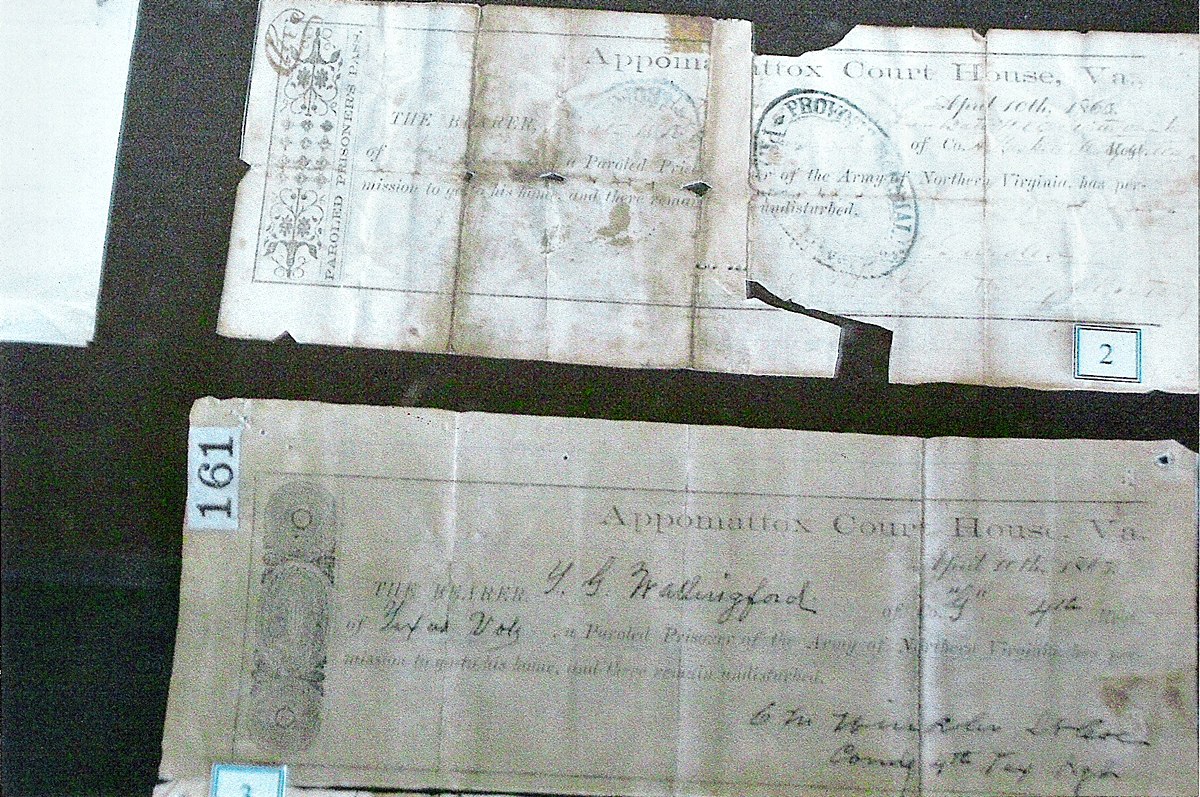 PAROLED PRISONER'S PASS.
Appoma ttox Court House, Va.,
April 10th, 1865.
THE BEARER,
of Co. Regt.
of a Paroled Pris er of the Army of Northern Virginia, has per-
mission to go to his home, and there remai undisturbed.
PROVO
2
161
Appomattox Court House, Va.
April 10th, 1865.
THE BEARER, Y. G. Wallingford of Co. "G" 4th Regt
of Texas Vols, a Paroled Prisoner of the Army of Northern Virginia, has per-
mission to go to his home, and there remain undisturbed.
C M Winkler Lt Col
Comg 4th Tex Regt
3